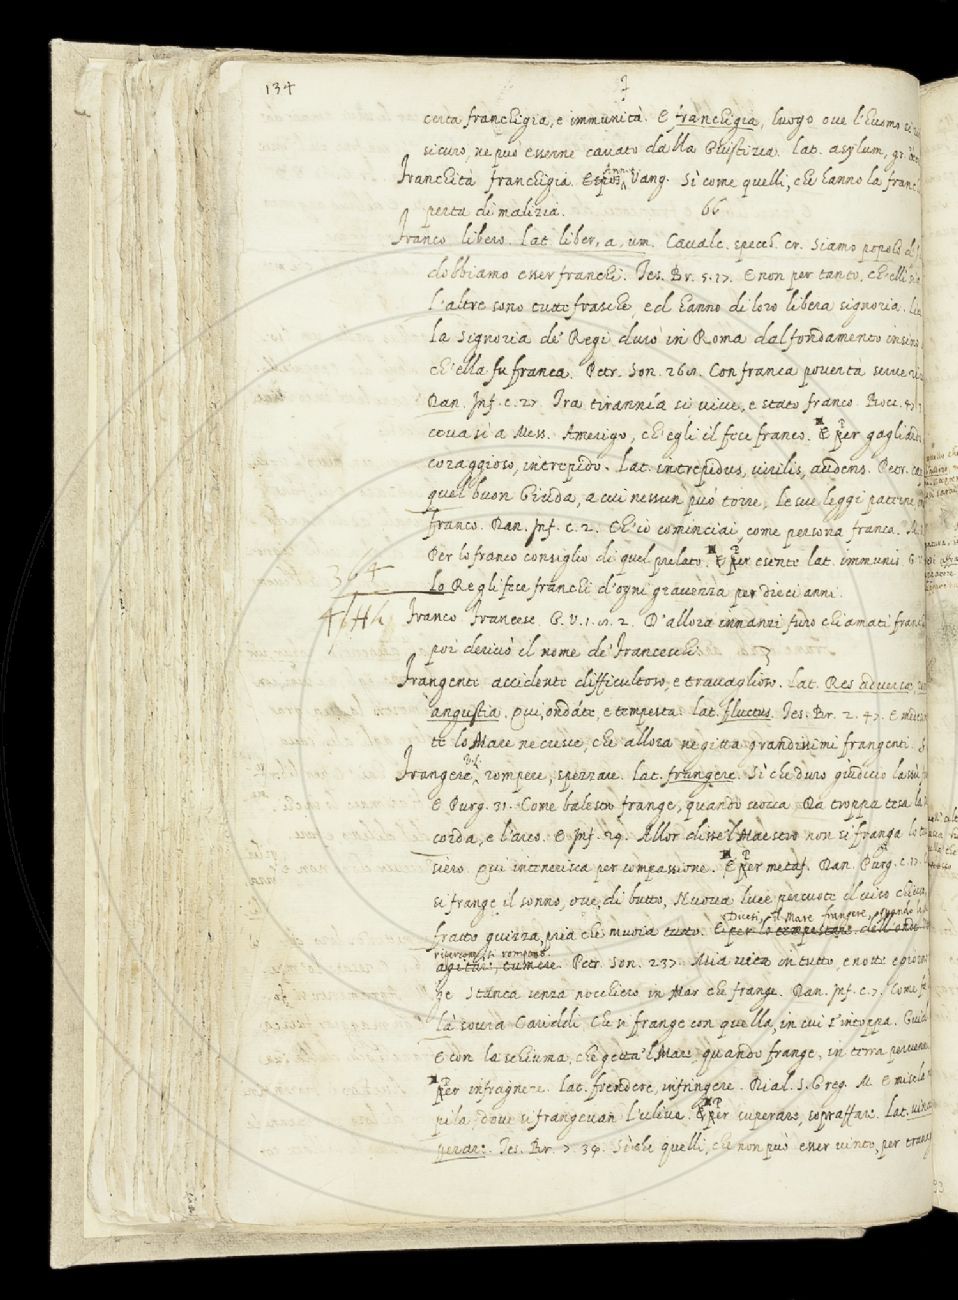 134
certa franchigia, e immunità. E franchigia, luogo ove l'huomo è
sicuro, ne può esserne cavato dalla Giustizia. Lat. asylum, gr.
Franchità franchigia. Vang. Sì come quelli, che hanno la franc
perta di malizia. 66
Franco libero. Lat. liber, a, um. Cavalc. specch. cr. Siamo popolo di
dobbiamo esser franchi. Tes. Br. 5. 17. E non per tanto, ch'elli
l'altre sono tutte frasche, ed hanno di loro libera signoria. Liv
La Signoria de' Regi durò in Roma dal fondamento insino
ch'ella fu franca. Petr. Son. 261. Con franca povertà
Dan. Inf. c. 27. Tra tirannia si vive, e stato franco. Bocc.
ceva sì a Mess. Amerigo, ch'egli il fece franco. E per gagliardo
coraggioso, intrepido. Lat. intrepidus, virilis, audens. Petr.
quel buon Giuda, a cui nessun può torre, Le sue leggi paterne
franco. Dan. Inf. c. 2. Ch'io cominciai, come persona franca.
Per lo franco consiglio di quel prelato. E per esente lat. immunis. G.
Lo Re gli fece franchi d'ogni gravezza per dieci anni.
Franco Francese. G. V. 1. 2. D'allora innanzi furo chiamati franc
poi derivò il nome de' Franceschi
Frangente accidente difficultoso, e travaglioso. Lat. Res adversa,
angustia. Qui, ondate, e tempesta. lat. fluctus. Tes. Br. 2. 47. E
te lo Mare ne cresce, che allora ne gitta grandissimi frangenti.
Frangere, rompere, spezzare. Lat. frangere. Sì che duro giudicio lassù
E Purg. 31. Come balestro frange, quando scocca Da troppa tesa la
corda, e l'arco. E Inf. 29. Allor disse 'l Maestro non si franga lo
siero. Qui intenerisca per compassione. E per metaf. Dan. Purg. c. 17.
si frange il sonno, ove, di butto, Nuova luce percuote il viso chiuso,
Dicesi, il Mare frangere, quando
fratto guizza, pria che muoia tutto. E per lo tempestare dell'onde
si rompono.
agitar, tumere. Petr. Son. 237. Mia vita in tutto, e notte e giorno
ge Stanca senza nocchiero in Mar che frange. Dan. Inf. c. 7. Come
là sovra Cariddi Che si frange con quella, in cui s'intoppa. Guid
E con la schiuma, che getta 'l Mare, quando frange, in terra pervenne
Per infragnere. Lat. frendere, infringere. Dial. S. Greg. M. E mise la
pila dove si frangevan l'uliva. E per superare, sopraffare. Lat. vince
perar: Tes. Br. 7. 34. Sì che quelli, che non può esser vinto, per